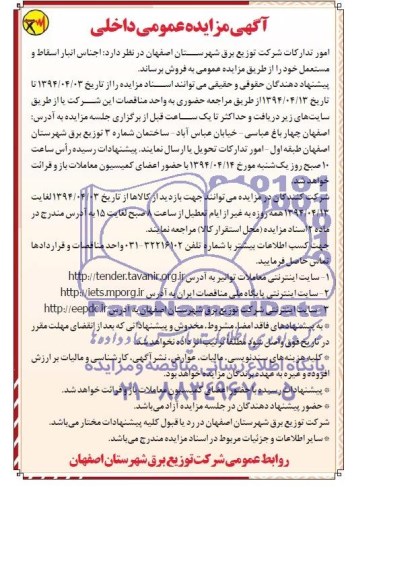 آگهی مزایده عمومی داخلی
امور تدارکات شرکت توزیع برق شهرستان اصفهان در نظر دارد: اجناس انبار اسقاط و
مستعمل خود را از طریق مزایده عمومی به فروش برساند.
پیشنهاد دهندگان حقوقی و حقیقی می توانند اسناد مزایده را از تاریخ ۱۳۹۴/۰۴/۰۳ تا
تاریخ ۱۳۹۴/۰۴/۱۳ از طریق مراجعه حضوری به واحد مناقصات این شرکت یا از طریق
سایت‌های زیر دریافت و حداکثر تا یک ساعت قبل از برگزاری جلسه مزایده به آدرس:
اصفهان چهار باغ عباسی - خیابان عباس آباد - ساختمان شماره ۳ توزیع برق شهرستان
اصفهان طبقه اول - امور تدارکات تحویل یا ارسال نمایند. پیشنهادات رسیده رأس ساعت
۱۰ صبح روز یک‌شنبه مورخ ۱۳۹۴/۰۴/۱۴ با حضور اعضای کمیسیون معاملات باز و قرائت
خواهد شد.
شرکت کنندگان در مزایده می توانند جهت بازدید از کالاها از تاریخ ۱۳۹۴/۰۴/۰۳ لغایت
۱۳۹۴/۰۴/۱۳ همه روزه به غیر از ایام تعطیل از ساعت ۸ صبح لغایت ۱۵ به آدرس مندرج در
ماده ۳ اسناد مزایده (محل استقرار کالا) مراجعه نمایند.
جهت کسب اطلاعات بیشتر با شماره تلفن ۳۲۲۱۶۱۰۲-۰۳۱ واحد مناقصات و قراردادها
تماس حاصل فرمایید.
۱- سایت اینترنتی معاملات توانیر به آدرس http://tender.tavanir.org.ir
۲- سایت اینترنتی پایگاه ملی مناقصات ایران به آدرس http://iets.mporg.ir
۳- سایت اینترنتی شرکت توزیع برق شهرستان اصفهان به آدرس http://eepdc.ir
* به پیشنهادهای فاقد امضا، مشروط، مخدوش و پیشنهاداتی که بعد از انقضای مهلت مقرر
در تاریخ فوق واصل شود مطلقا ترتیب اثر داده نخواهد شد.
* کلیه هزینه های سند نویسی، مالیات، عوارض، نشر آگهی، کارشناسی و مالیات بر ارزش
افزوده و غیره به عهده برندگان مزایده خواهد بود.
* پیشنهادات رسیده با حضور اعضای کمیسیون معاملات باز و قرائت خواهد شد.
* حضور پیشنهاد دهندگان در جلسه مزایده آزاد می‌باشد.
شرکت توزیع برق شهرستان اصفهان در رد یا قبول کلیه پیشنهادات مختار می‌باشد.
* سایر اطلاعات و جزئیات مربوط در اسناد مزایده مندرج می‌باشد.
روابط عمومی شرکت توزیع برق شهرستان اصفهان
پایگاه اطلاع رسانی مناقصه و مزایده